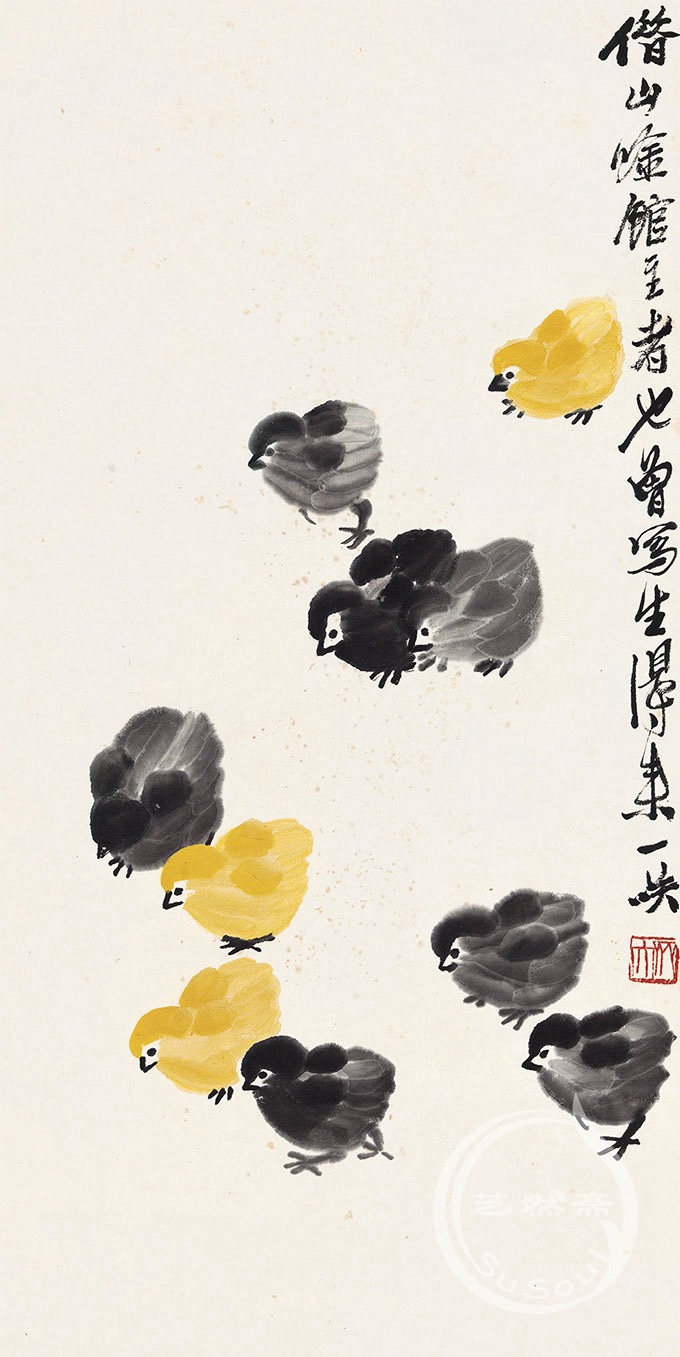 借山唫館主者也曾寫生得來一咲
芝然斋
SuSoul